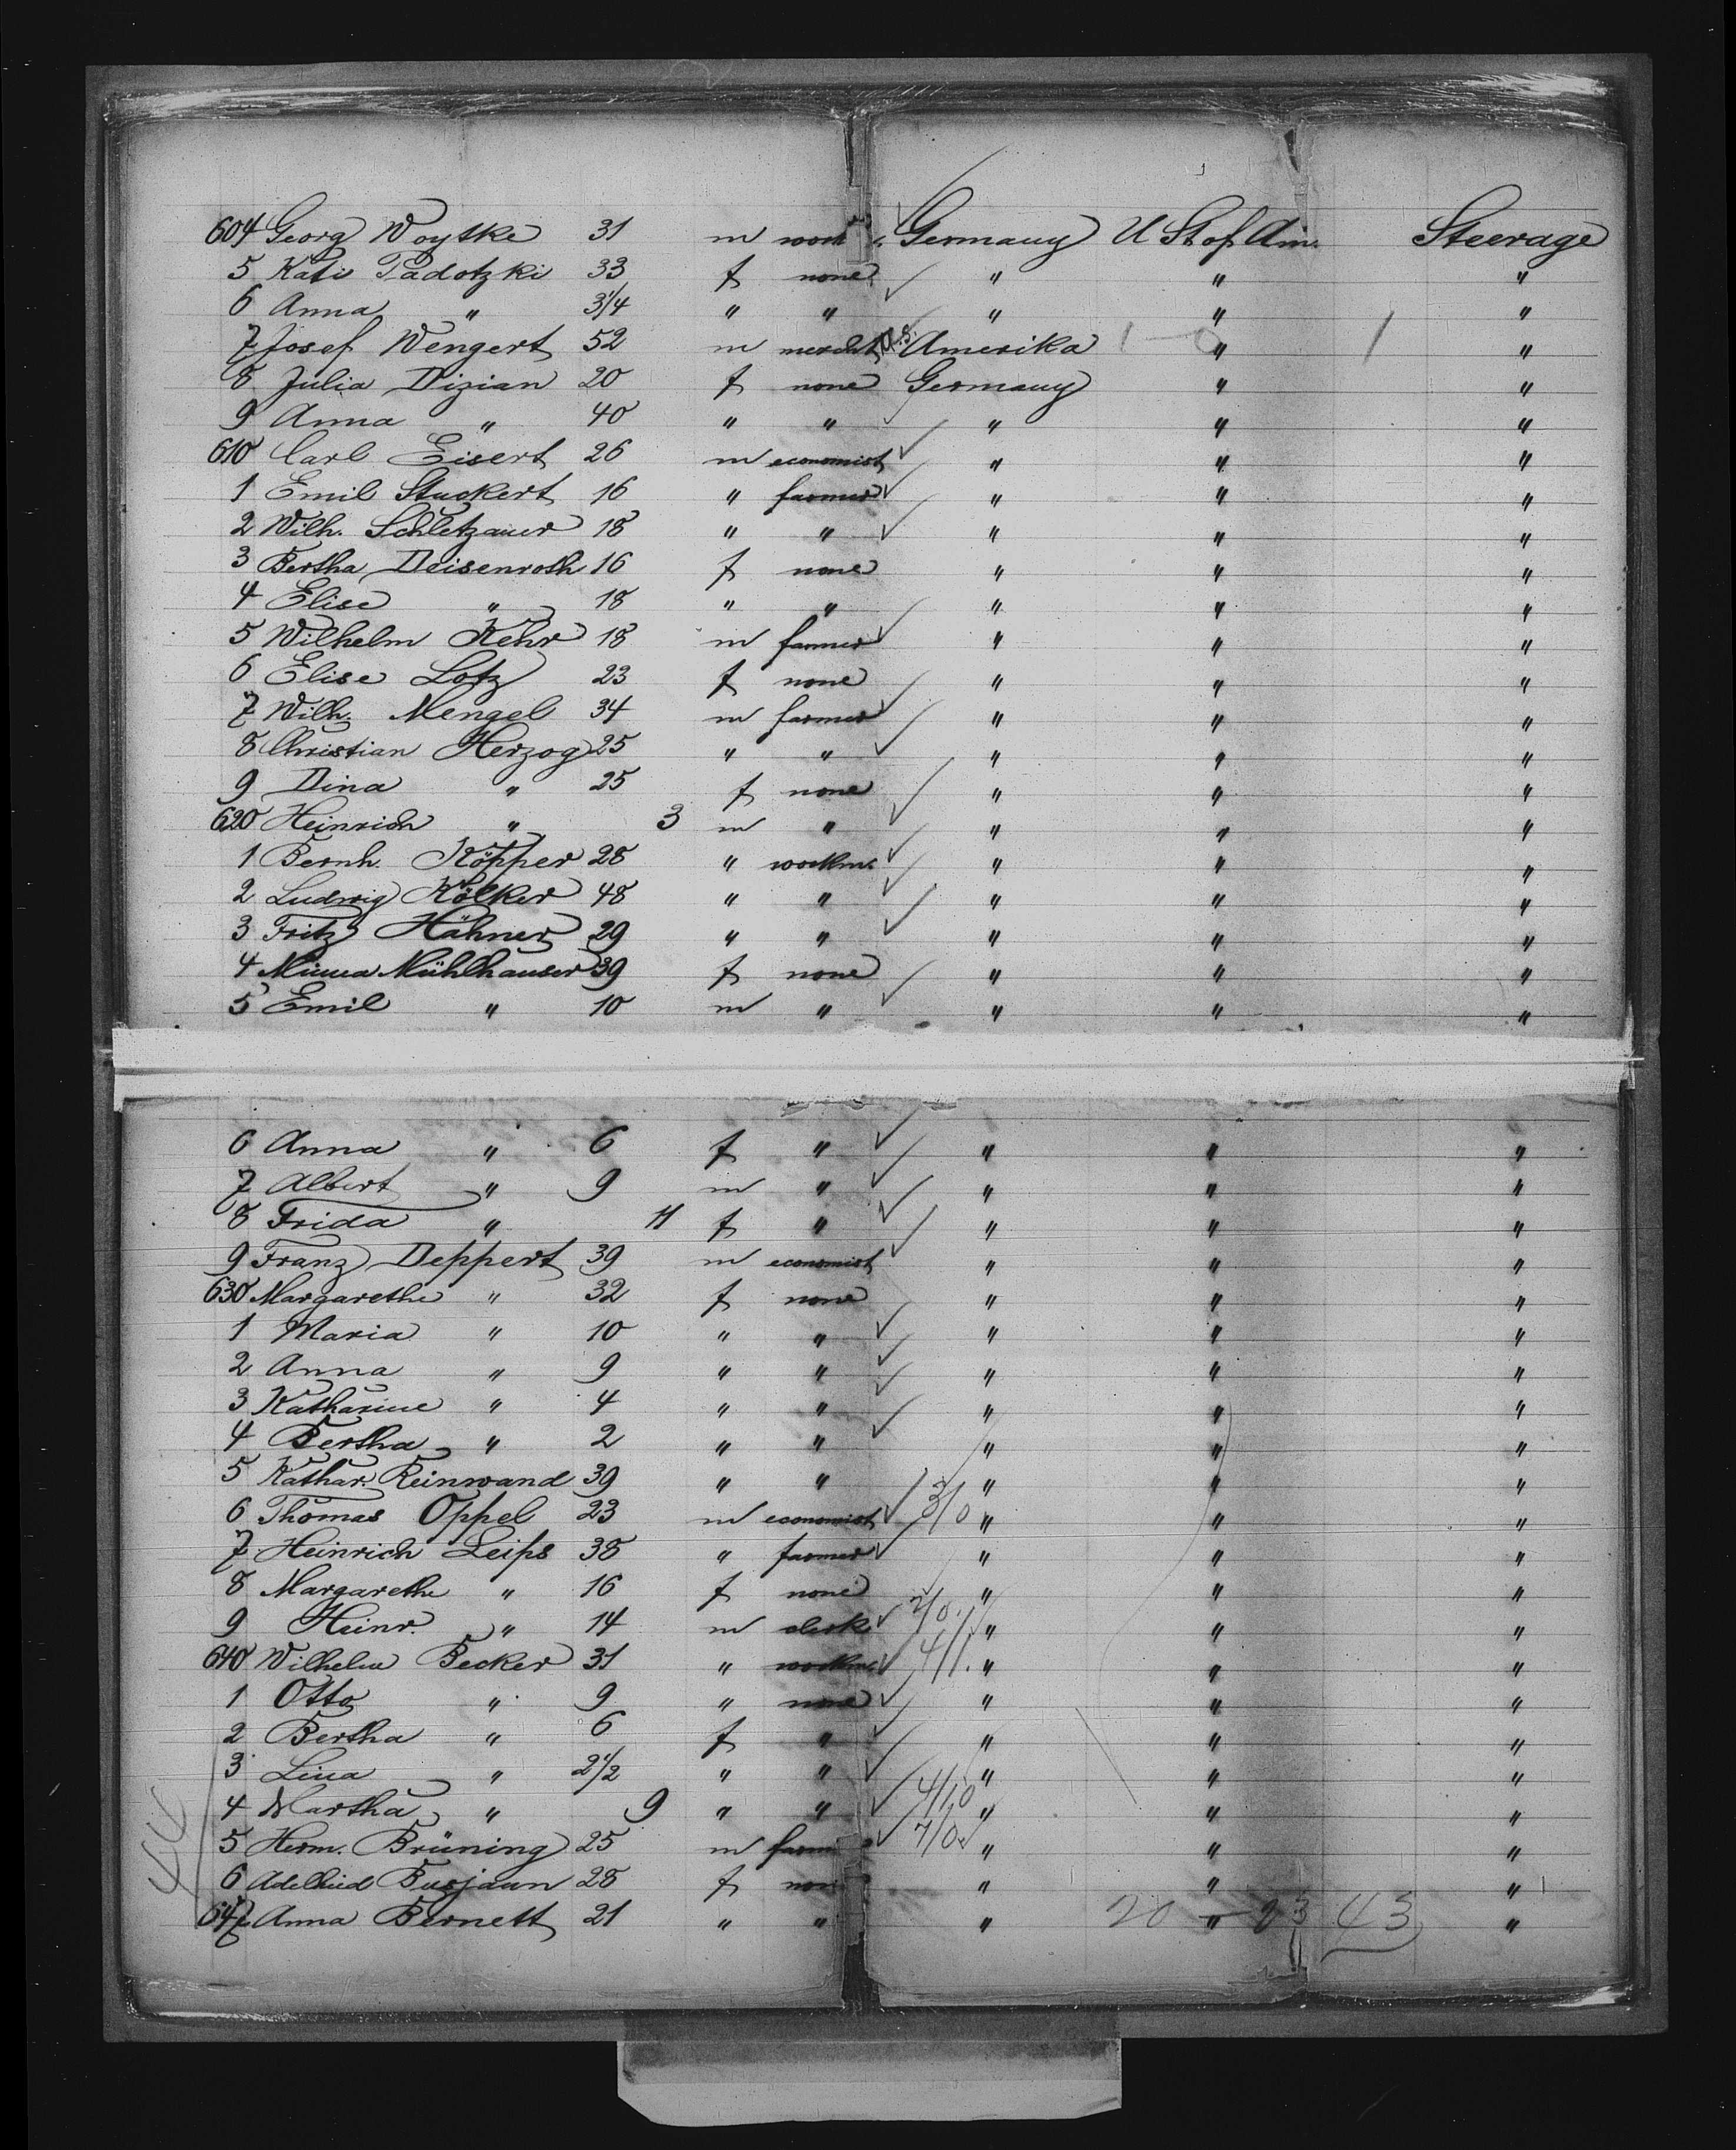 604 Georg Woytke 31 m work Germany U St of Am. Steerage
5 Kati Padotzki 33 f none " " "
6 Anna " 3 1/4 " " " " "
7 Josef Wengert 52 m mercht. U.S. Amerika 1 - 0 " 1 "
8 Julia Dizian 20 f none Germany " "
9 Anna " 40 " " " " "
610 Carl Eisert 26 m economist " " "
1 Emil Stuckert 16 " farmer " " "
2 Wilh. Schletzauer 18 " " " " "
3 Bertha Deisenroth 16 f none " " "
4 Elise " 18 " " " " "
5 Wilhelm Kehr 18 m farmer " " "
6 Elise Lotz 23 f none " " "
7 Wilh. Mengel 34 m farmer " " "
8 Christian Herzog 25 " " " " "
9 Dina " 25 f none " " "
620 Heinrich " 3 m " " " "
1 Bernh. Köpper 28 " workm. " " "
2 Ludwig Kölker 48 " " " " "
3 Fritz Hähner 29 " " " " "
4 Minna Mühlhauser 39 f none " " "
5 Emil " 10 m " " " "
6 Anna " 6 f " " " "
7 Albert " 9 m " " " "
8 Frida " 11 f " " " "
9 Franz Deppert 39 m economist " " "
630 Margarethe " 32 f none " " "
1 Maria " 10 " " " " "
2 Anna " 9 " " " " "
3 Katharine " 4 " " " " "
4 Bertha " 2 " " " " "
5 Kathar. Reinwand 39 " " " " "
6 Thomas Oppel 23 m economist 3/0 " " "
7 Heinrich Leips 38 " farmer " " "
8 Margarethe " 16 f none " " "
9 Heinr. " 14 m clerk 2/0. " " "
640 Wilhelm Becker 31 " workm. 4/1. " " "
1 Otto " 9 " none " " "
2 Bertha " 6 f " " " "
3 Lina " 2 1/2 " " " " "
4 Martha " 9 " " 4/10 " " "
5 Herm. Brüning 25 m farm 7/0 " " "
6 Adelheid Busjaun 28 f non " " "
647 Anna Bernett 21 " " " 20 - " 23 43 "